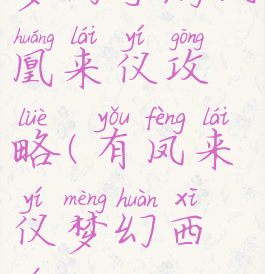 huáng lái yí gōng
凰来仪攻
lüè yǒu fèng lái
略(有凤来
yí mèng huàn xī
仪梦幻西